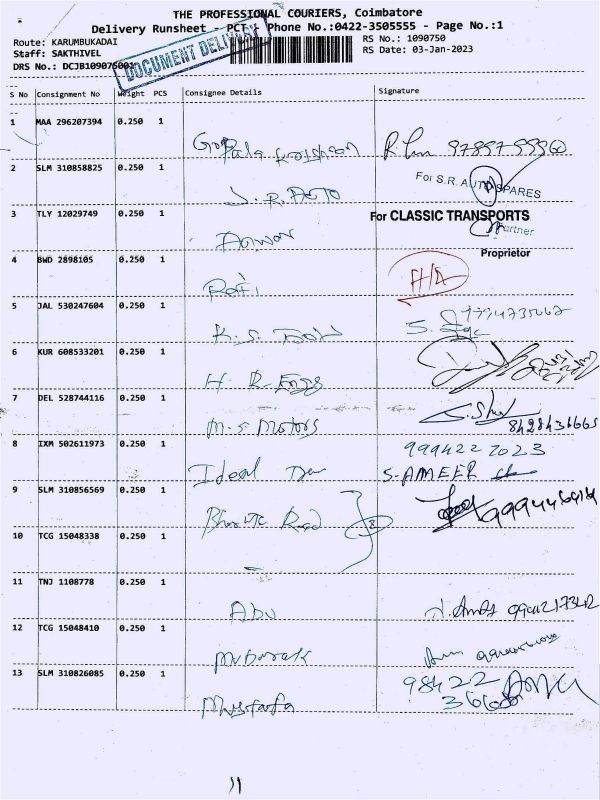 THE PROFESSIONAL COURIERS, Coimbatore
Delivery Runsheet - PCT Phone No.:0422-3505555 - Page No.:1
Route: KARUMBUKADAI
RS No.: 1090750
Staff: SAKTHIVEL
RS Date: 03-Jan-2023
DRS No.: DCJB109075001
DOCUMENT DELIVERY
S No Consignment No Weight PCS Consignee Details Signature
1 MAA 296207394 0.250 1
97897 99960
2 SLM 310858825 0.250 1
For S.R. AUTO SPARES
S.R. AUTO
3 TLY 12029749 0.250 1
For CLASSIC TRANSPORTS
Partner
Anwar
4 BWD 2898105 0.250 1
Proprietor
Rafi
5 JAL 530247604 0.250 1
K.S.
6 KUR 608533201 0.250 1
H. R. Engg
7 DEL 528744116 0.250 1
M.S Motors
8 IXM 502611973 0.250 1
999422 2023
Ideal
S-AMEER
9 SLM 310856569 0.250 1
10 TCG 15048338 0.250 1
11 TNJ 1108778 0.250 1
Abu
12 TCG 15048410 0.250 1
Mubarak
13 SLM 310826085 0.250 1
98422
Mustafa